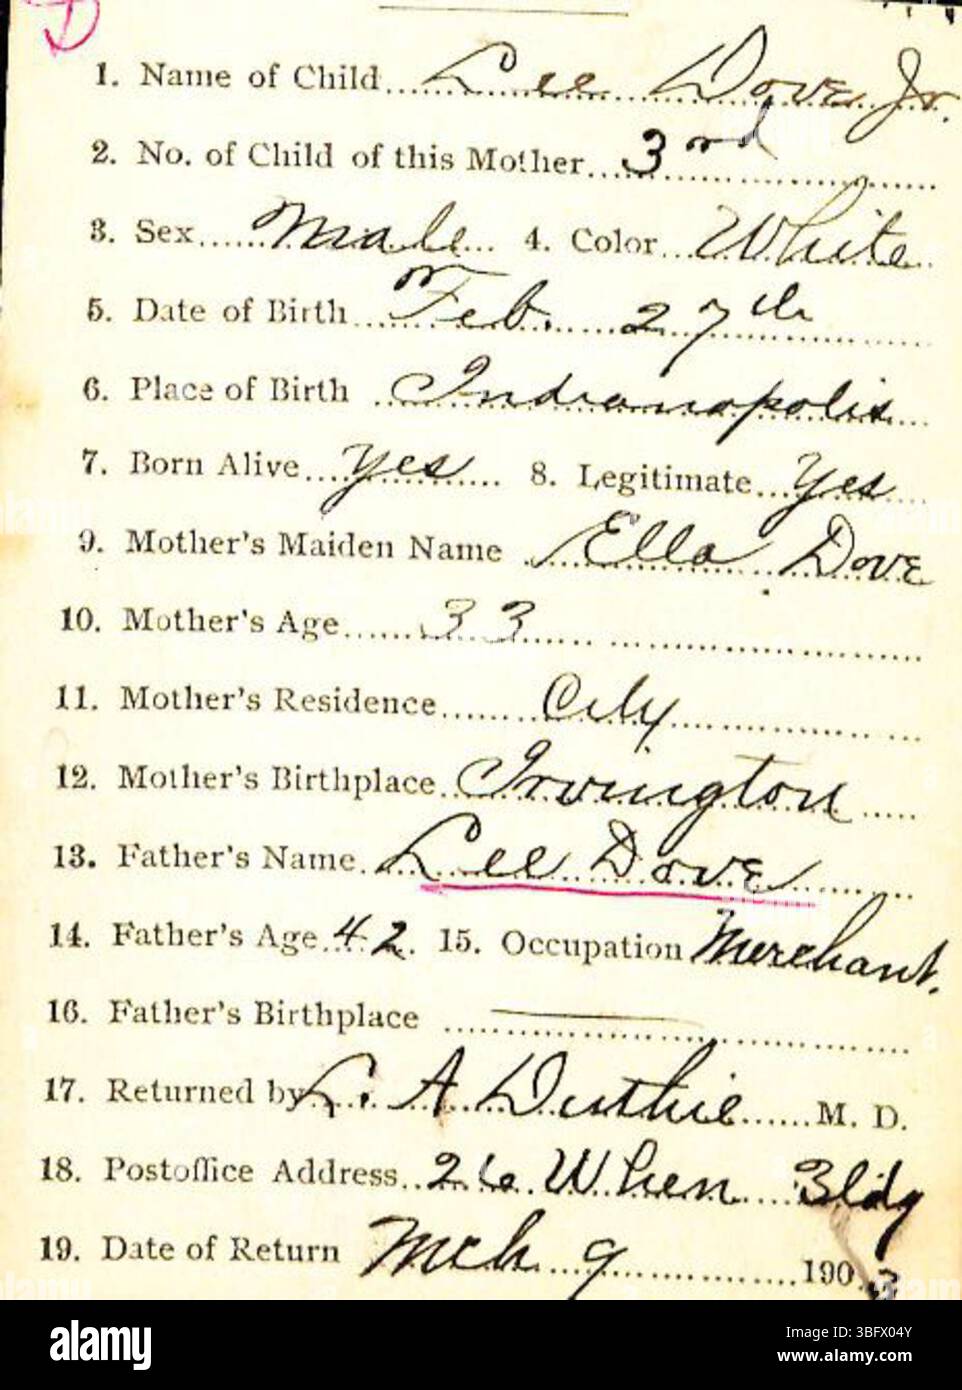 1. Name of Child Lee Dove Jr.
2. No. of Child of this Mother 3rd
3. Sex Male 4. Color White
5. Date of Birth Feb. 27th
6. Place of Birth Indianapolis
7. Born Alive Yes 8. Legitimate Yes
9. Mother's Maiden Name Ella Dove
10. Mother's Age 33
11. Mother's Residence City
12. Mother's Birthplace Irvington
13. Father's Name Lee Dove
14. Father's Age 42. 15. Occupation Merchant.
16. Father's Birthplace
17. Returned by L. A Duthie M. D.
18. Postoffice Address 26 When Bldg
19. Date of Return Mch 9 1903
alamy
Image ID: 3BFX04Y
www.alamy.com